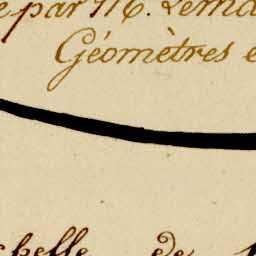 par M. Lema
Géomètres e
chelle de